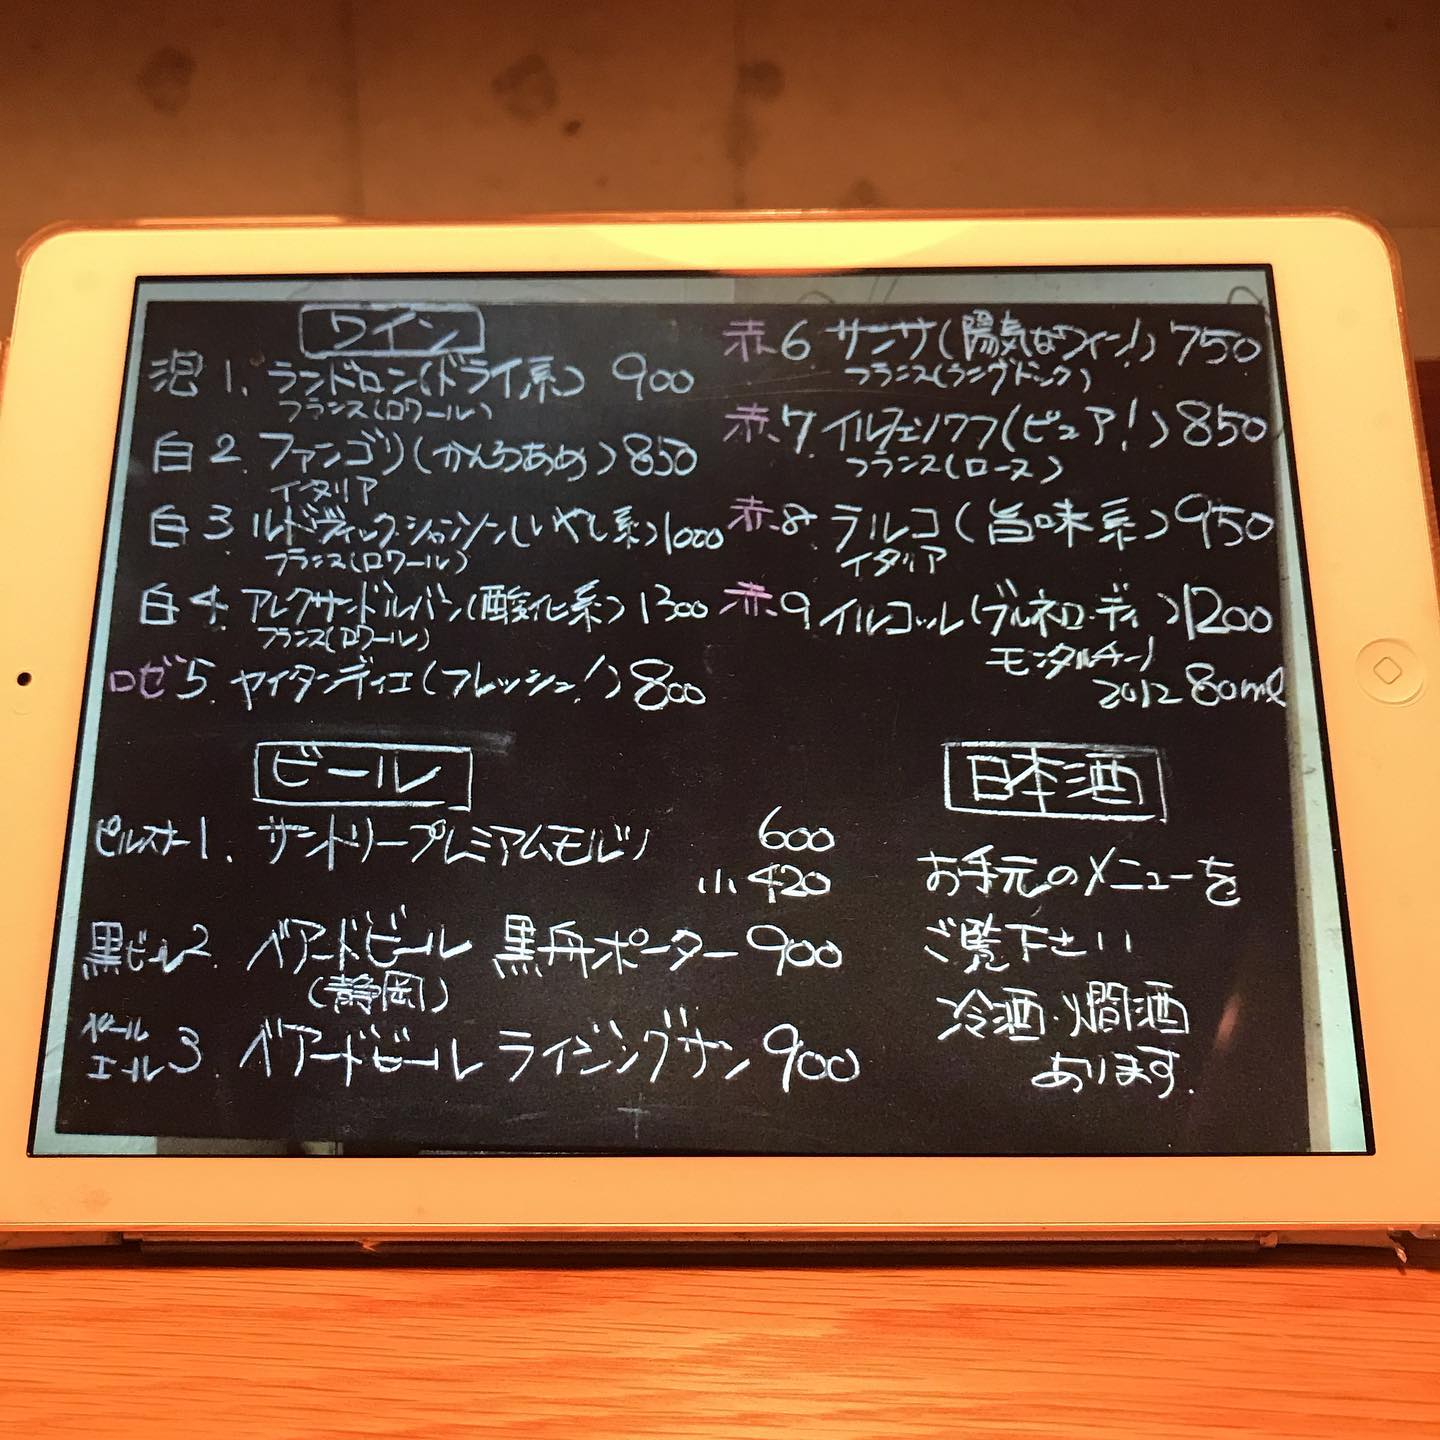 ワイン
泡 1. ランドロン(ドライ系) 900
フランス(ロワール)
白 2. ファンゴリ(かんろあめ) 850
イタリア
白 3 ルドヴィック・シャンソン(いやし系) 1000
フランス(ロワール)
白 4. アレクサンドルバン(酸化系) 1300
フランス(ロワール)
ロゼ 5. ヤイタンディエ(フレッシュ!) 800
赤. 6 サンサ(陽気なワイン!) 750
フランス(ラングドック)
赤. 7 イルフェソワフ(ピュア!) 850
フランス(ローヌ)
赤. 8 ラルコ(旨味系) 950
イタリア
赤. 9 イルコッレ(ブルネロ・ディ) 1200
モンタルチーノ
2012 80ml
ビール
ピルスナー1. サントリープレミアムモルツ 600
小 420
黒ビール2. ベアードビール 黒舟ポーター 900
(静岡)
ペール
エール3 ベアードビール ライジングサン 900
日本酒
お手元のメニューを
ご覧下さい
冷酒・燗酒
あります.